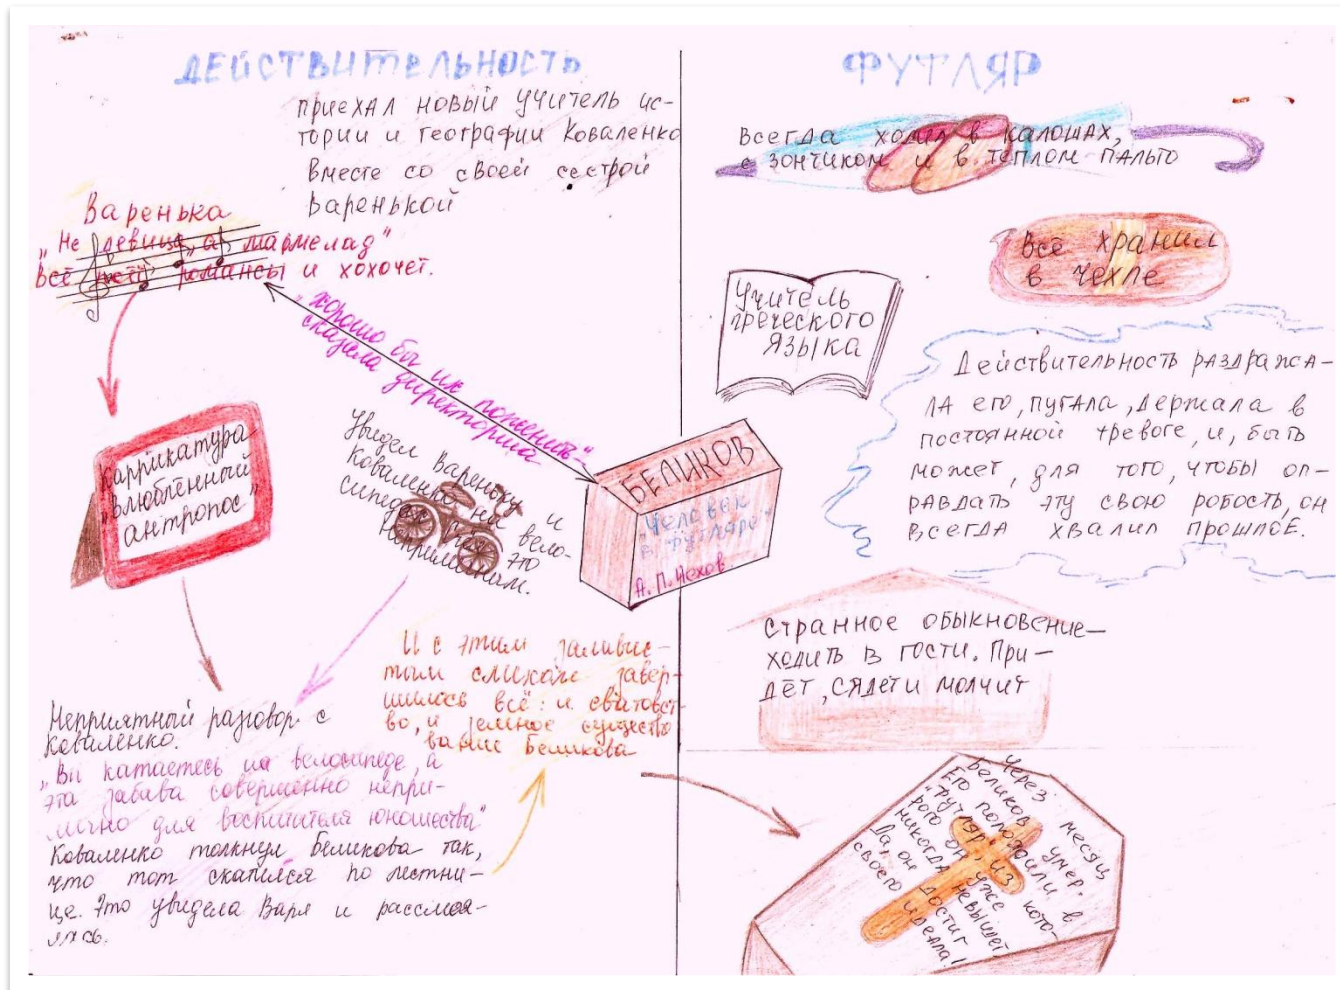 ДЕЙСТВИТЕЛЬНОСТЬ
приехал новый учитель ис-
тории и географии Коваленко
Вместе со своей сестрой
Варенькой
Варенька
„Не девица, а мармелад"
Всё поёт романсы и хохочет.
„Хорошо бы их поженить"-
сказала директорша
Каррикатура
„Влюблённый
антропос"
Увидел Вареньку и
Коваленко на вело-
сипедах. Счёл это
неприличным.
БЕЛИКОВ
„Человек
в футляре"
А.П.Чехов.
И с этим заливис-
тым смехом завер-
шилось всё: и сватовст-
во, и земное существо
вание Беликова
Неприятный разговор с
Коваленко.
„Вы катаетесь на велосипеде, а
эта забава совершенно непри-
лична для воспитателя юношества"
Коваленко толкнул Беликова так,
что тот скатился по лестни-
це. Это увидела Варя и рассмея-
лась.
ФУТЛЯР
Всегда ходил в калошах,
с зонтиком и в тёплом пальто
Всё хранил
в чехле
Учитель
греческого
языка
Действительность раздража-
ла его, пугала, держала в
постоянной тревоге, и, быть
может, для того, чтобы оп-
равдать эту свою робость, он
всегда хвалил прошлое.
Странное обыкновение-
ходить в гости. При-
дёт, сядет и молчит
Через месяц
Беликов умер.
Его положили в
„футляр", из кото-
рого он уже
никогда не выйдет.
Да, он достиг
своего идеала!